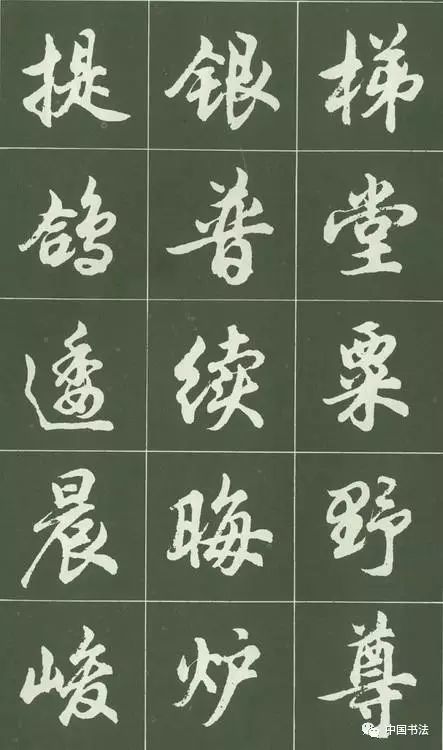 梯堂粟野尊
银普续晦炉
提鸽逶晨峻
中国书法